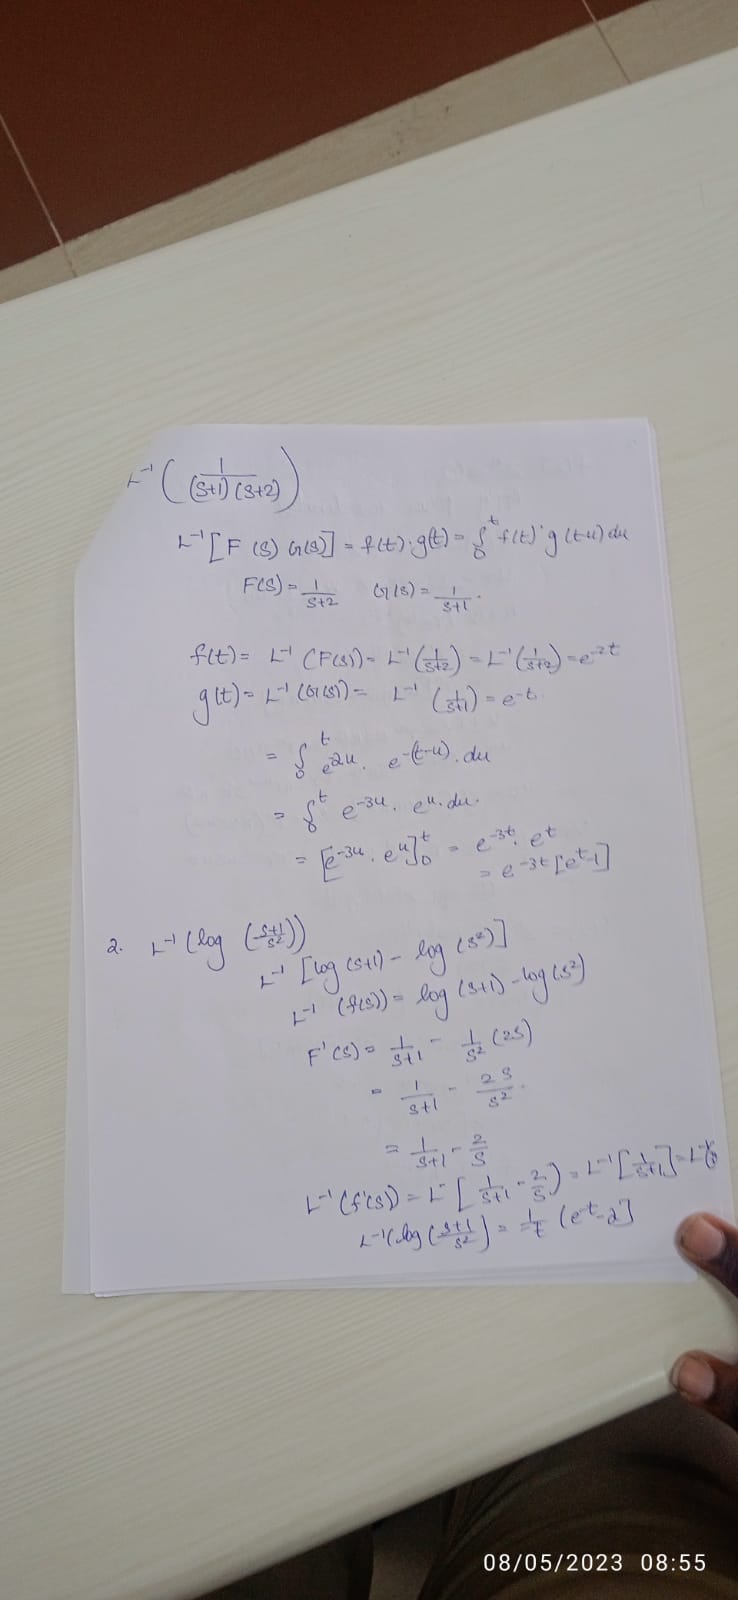 L⁻¹ ( 1/((s+1)(s+2)) )
L⁻¹[F(s) G(s)] = f(t).g(t) = ∫₀ᵗ f(t) g(t-u) du
F(s) = 1/(s+2) G(s) = 1/(s+1).
f(t) = L⁻¹(F(s)) = L⁻¹(1/(s+2)) = L⁻¹(1/(s+2)) = e⁻²ᵗ
g(t) = L⁻¹(G(s)) = L⁻¹(1/(s+1)) = e⁻ᵗ.
= ∫₀ᵗ e²ᵘ. e^-(t-u). du
= ∫₀ᵗ e⁻³ᵘ. eᵘ. du.
= [e⁻³ᵘ. eᵘ]₀ᵗ = e⁻³ᵗ. eᵗ
= e⁻³ᵗ [eᵗ-1]
2. L⁻¹(log((s+1)/s²))
L⁻¹[log(s+1) - log(s²)]
L⁻¹(f(s)) = log(s+1) - log(s²)
F'(s) = 1/(s+1) - 1/s² (2s)
= 1/(s+1) - 2s/s².
= 1/(s+1) - 2/s
L⁻¹(f'(s)) = L⁻[1/(s+1) - 2/s) = L⁻¹[1/(s+1)] =
L⁻¹(log((s+1)/s²) = 1/-t (e⁻ᵗ-2]
08/05/2023 08:55